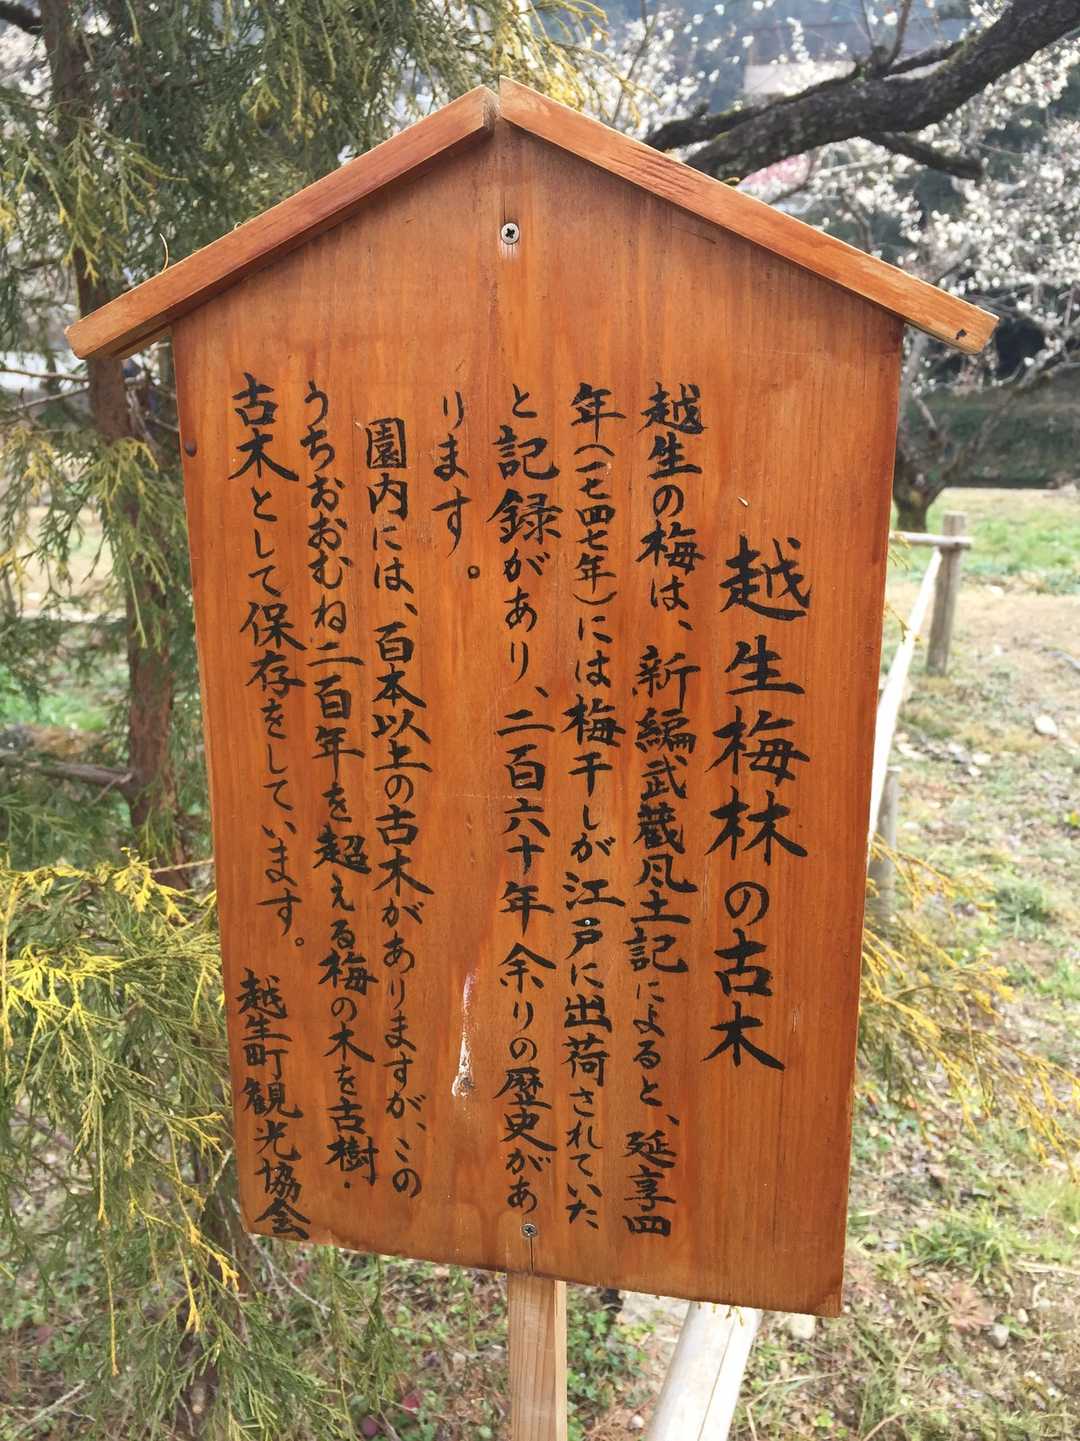 越生梅林の古木
越生の梅は、新編武蔵風土記によると、延享四
年(一七四七年)には梅干しが江戸に出荷されていた
と記録があり、二百六十年余りの歴史があ
ります。
園内には、百本以上の古木がありますが、この
うちおおむね二百年を超える梅の木を古樹・
古木として保存をしています。
越生町観光協会